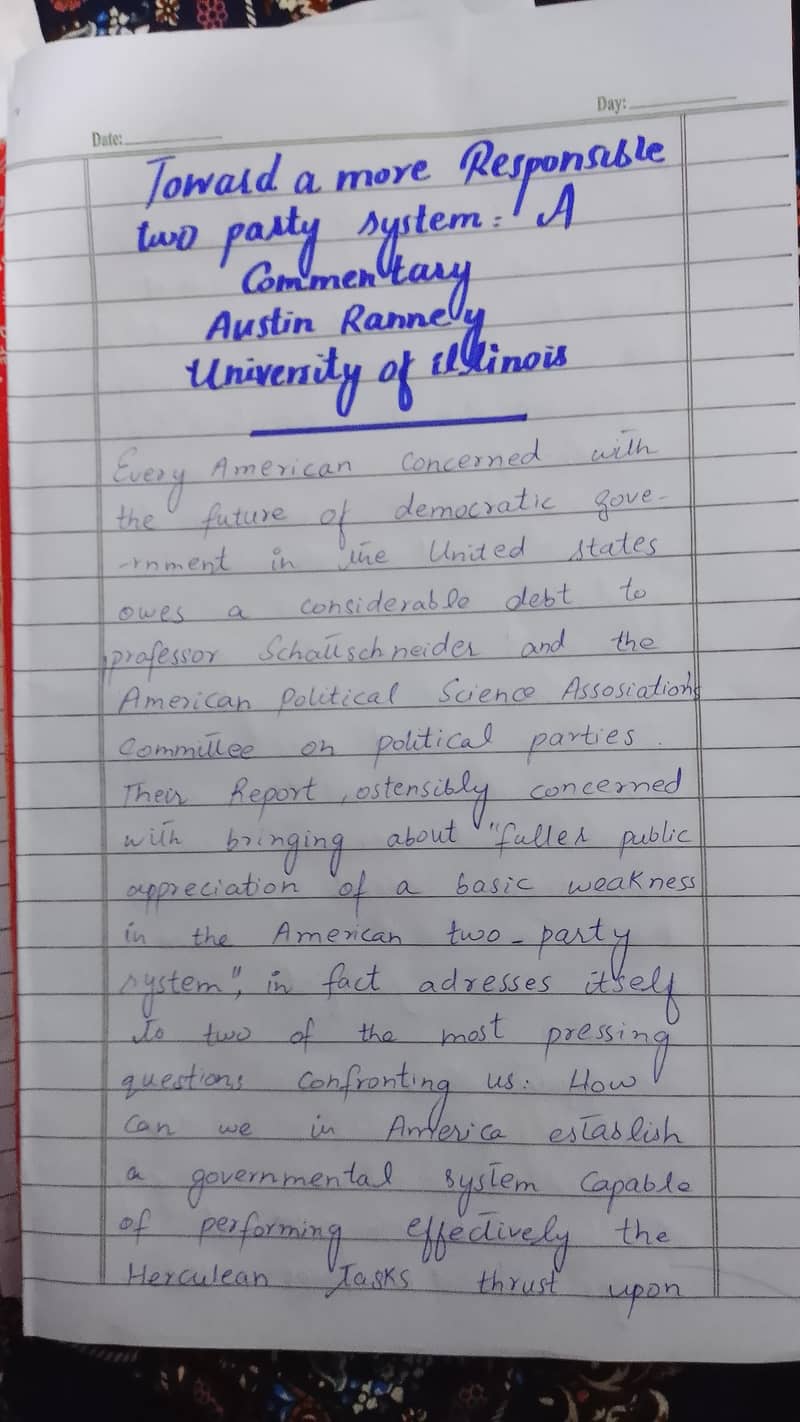 Day:
Date:
Toward a more Responsible
two party system: A
Commentary
Austin Rannely
University of illinois
Every American Concerned with
the future of democratic gove-
-rnment in the United states
owes a considerable debt to
professor Schattschneider and the
American Political Science Assosiations
Committee on political parties.
Their Report, ostensibly concerned
with bringing about "fuller public
appreciation of a basic weakness
in the American two-party
system", in fact adresses itself
to two of the most pressing
questions confronting us: How
can we in America establish
a governmental system Capable
of performing effectively the
Herculean Tasks thrust upon